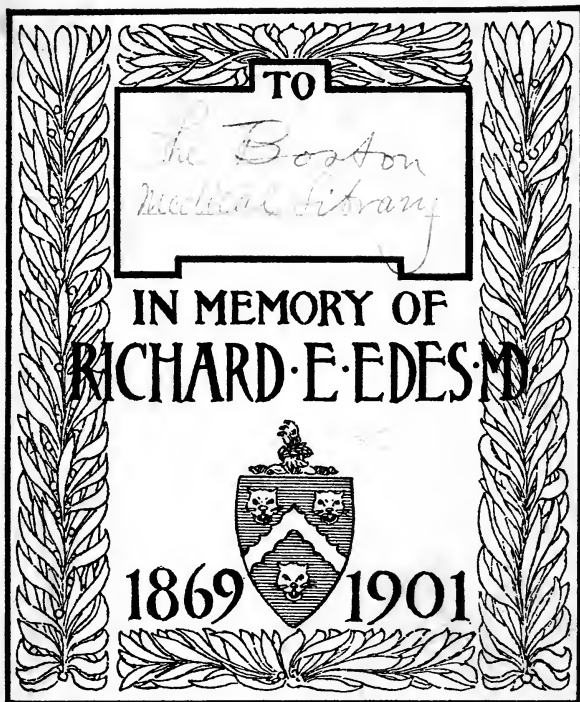 TO
The Boston
Medical Library
IN MEMORY OF
RICHARD·E·EDES·MD
1869 1901